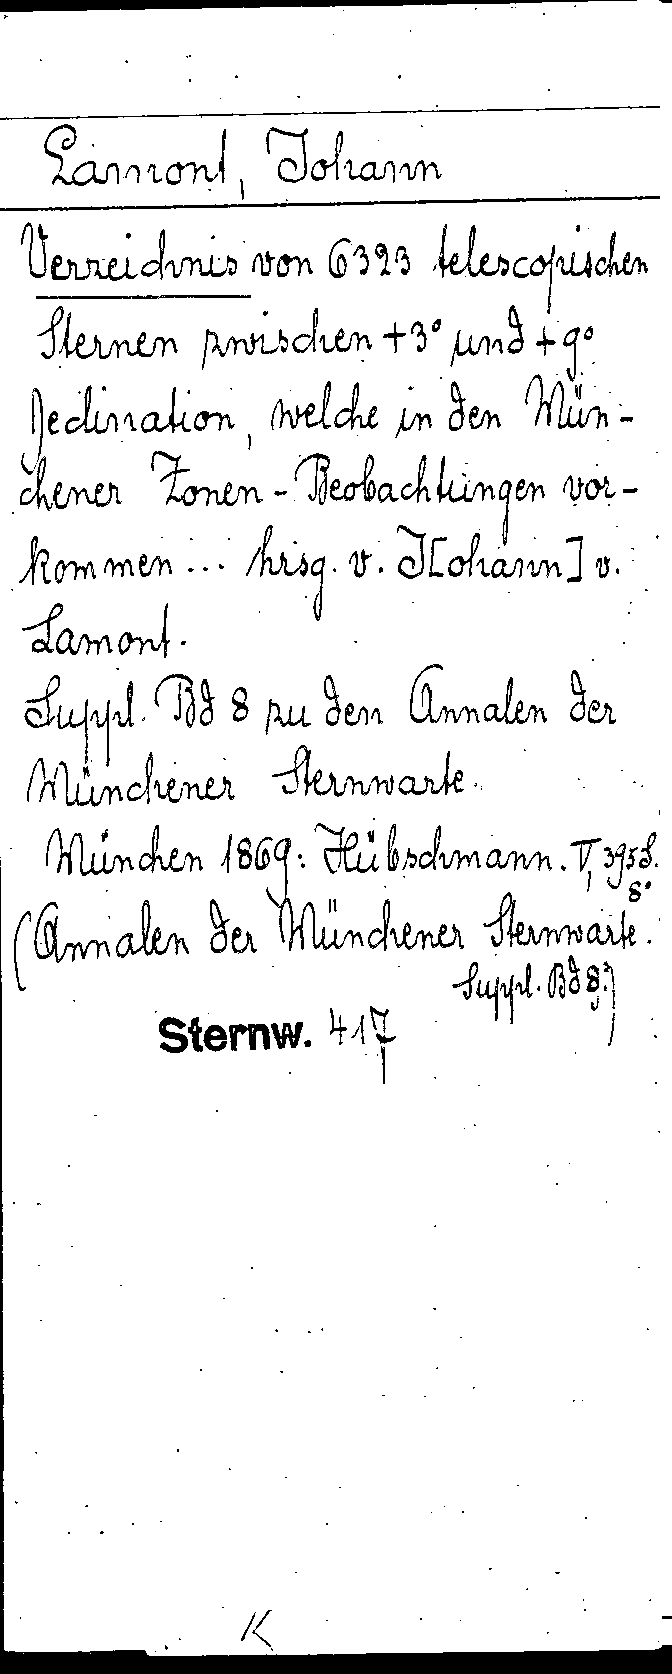 Lamont, Johann
Verzeichnis von 6323 telescopischen
Sternen zwischen +3° und +9°
Declination, welche in den Mün-
chener Zonen-Beobachtungen vor-
kommen ... hrsg. v. J[ohann] v.
Lamont.
Suppl. Bd 8 zu den Annalen der
Münchener Sternwarte.
München 1869: Hübschmann. V, 395 S.
8°
(Annalen der Münchener Sternwarte.
Suppl. Bd 8.)
Sternw. 417
K